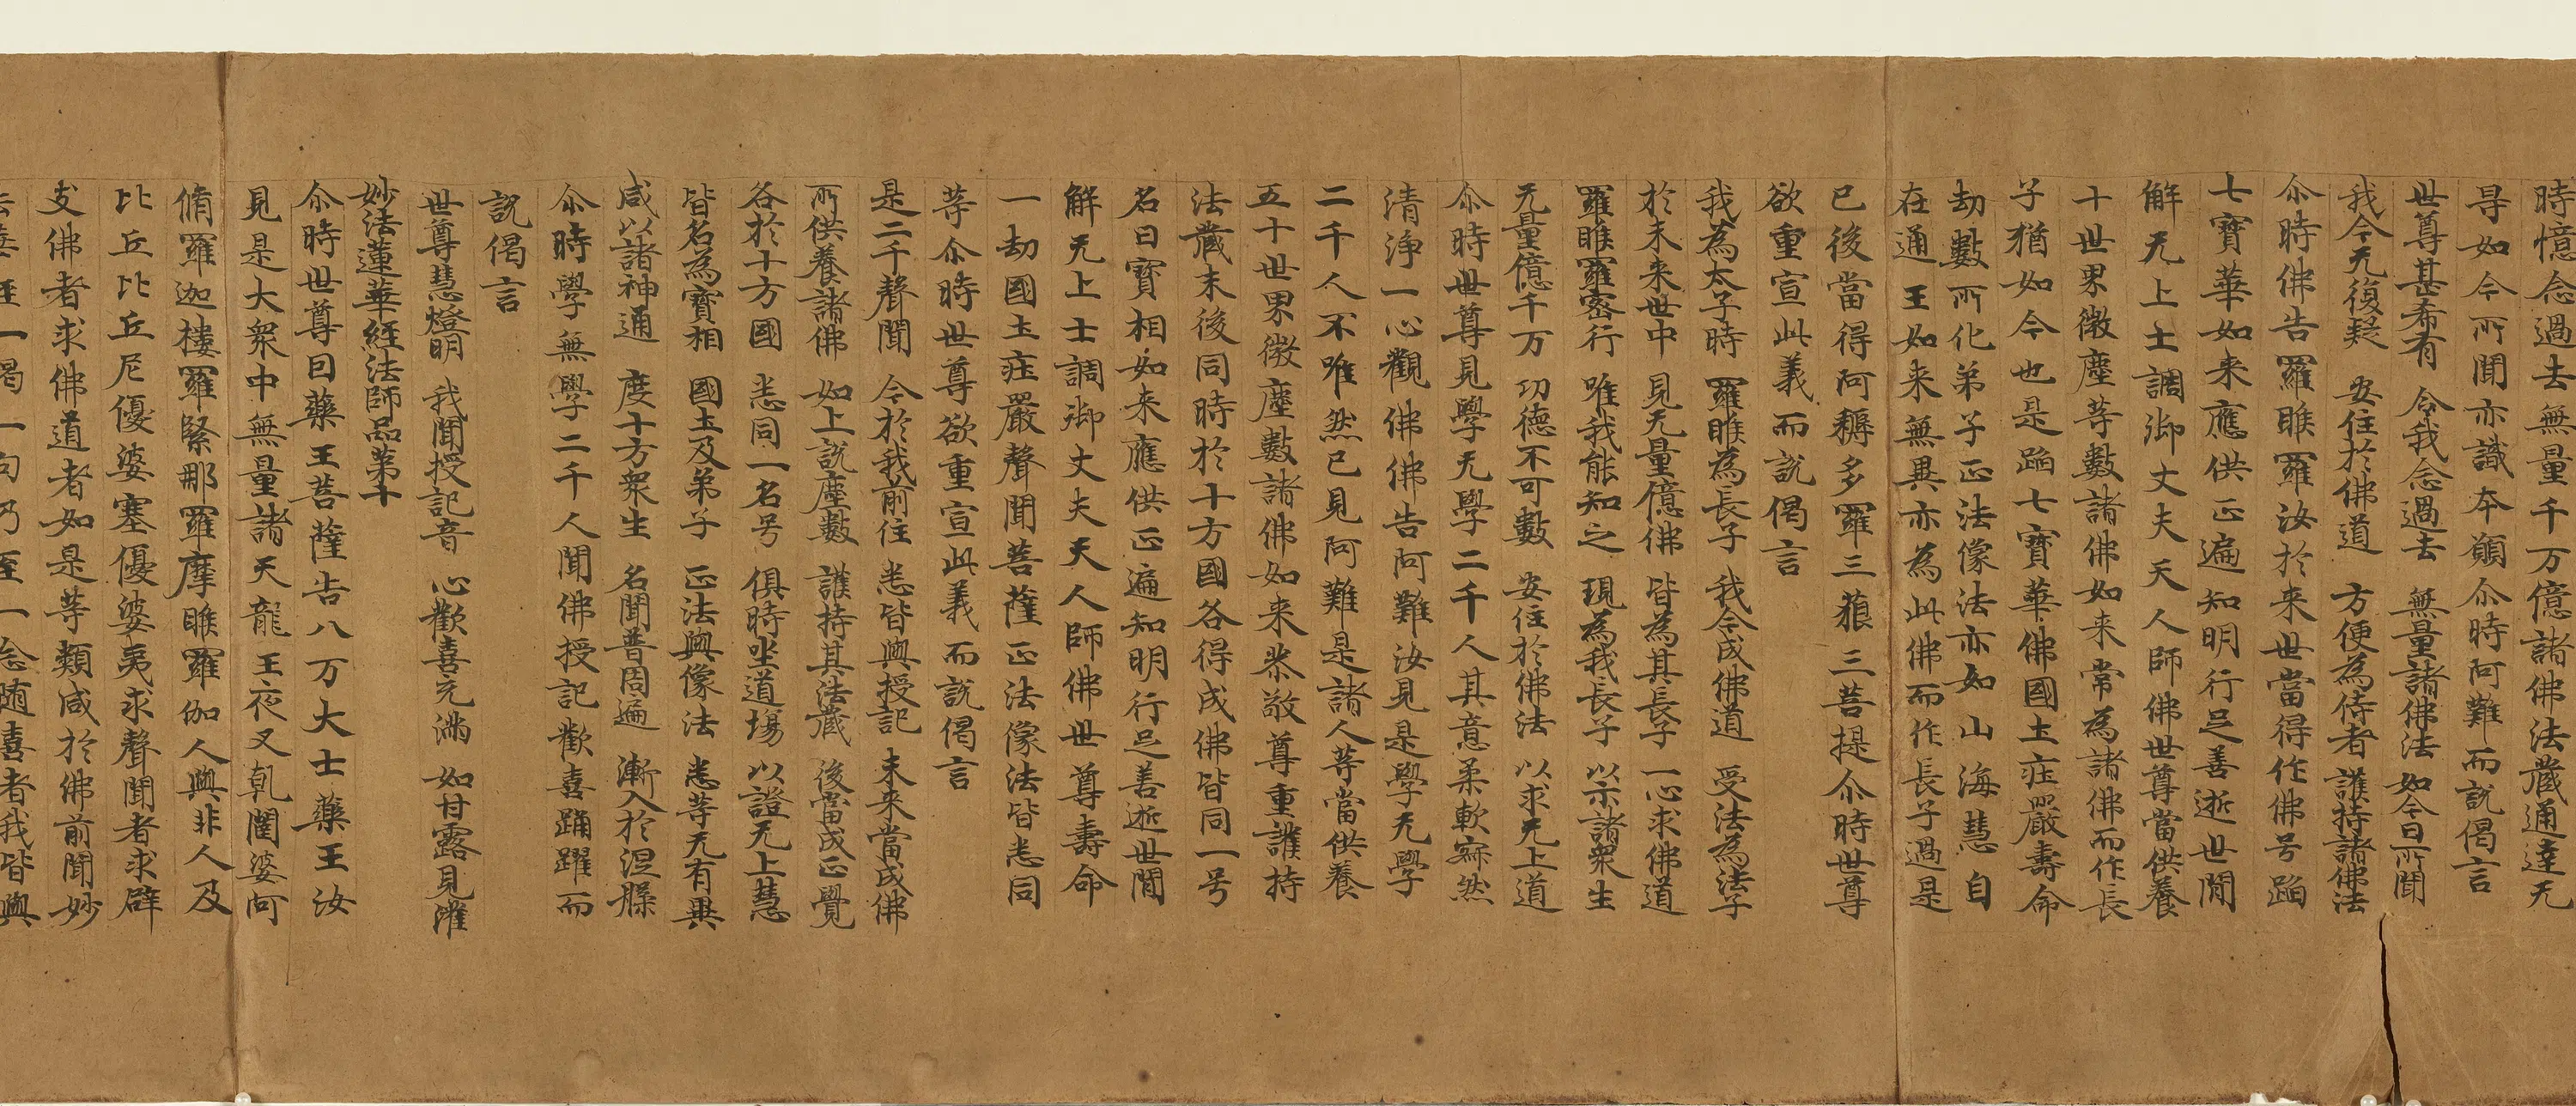 時憶念過去無量千万億諸佛法藏通達无
㝵如今所聞亦識本願尒時阿難而說偈言
世尊甚希有　令我念過去　無量諸佛法　如今日所聞
我今无復疑　安住於佛道　方便為侍者　護持諸佛法
尒時佛告羅睺羅汝於來世當得作佛号蹈
七寶華如来應供正遍知明行足善逝世閒
解无上士調御丈夫天人師佛世尊當供養
十世界微塵等數諸佛如来常為諸佛而作長
子猶如今也是蹈七寶華佛國土莊嚴壽命
劫數所化弟子正法像法亦如山海慧自
在通王如来無異亦為此佛而作長子過是
已後當得阿耨多羅三藐三菩提尒時世尊
欲重宣此義而說偈言
我為太子時　羅睺為長子　我今成佛道　受法為法子
於未来世中　見无量億佛　皆為其長子　一心求佛道
羅睺羅密行　唯我能知之　現為我長子　以示諸衆生
无量億千万　功德不可數　安住於佛法　以求无上道
尒時世尊見學无學二千人其意柔軟寂然
清淨一心觀佛佛告阿難汝見是學无學
二千人不唯然已見阿難是諸人等當供養
五十世界微塵數諸佛如来恭敬尊重護持
法藏末後同時於十方國各得成佛皆同一号
名曰寶相如来應供正遍知明行足善逝世閒
解无上士調御丈夫天人師佛世尊壽命
一劫國土莊嚴聲聞菩薩正法像法皆悉同
等尒時世尊欲重宣此義而說偈言
是二千聲聞　今於我前住　悉皆與授記　未来當成佛
所供養諸佛　如上說塵數　護持其法藏　後當成正覺
各於十方國　悉同一名号　俱時坐道場　以證无上慧
皆名為寶相　國土及弟子　正法與像法　悉等无有異
咸以諸神通　度十方衆生　名聞普周遍　漸入於涅槃
尒時學無學二千人聞佛授記歡喜踊躍而
說偈言
世尊慧燈明　我聞授記音　心歡喜充滿　如甘露見灌
妙法蓮華経法師品第十
尒時世尊因藥王菩薩告八万大士藥王汝
見是大衆中無量諸天龍王夜叉乹闥婆阿
脩羅迦樓羅緊那羅摩睺羅伽人與非人及
比丘比丘尼優婆塞優婆夷求聲聞者求辟
支佛者求佛道者如是等類咸於佛前聞妙
法華経一偈一句乃至一念随喜者我皆與